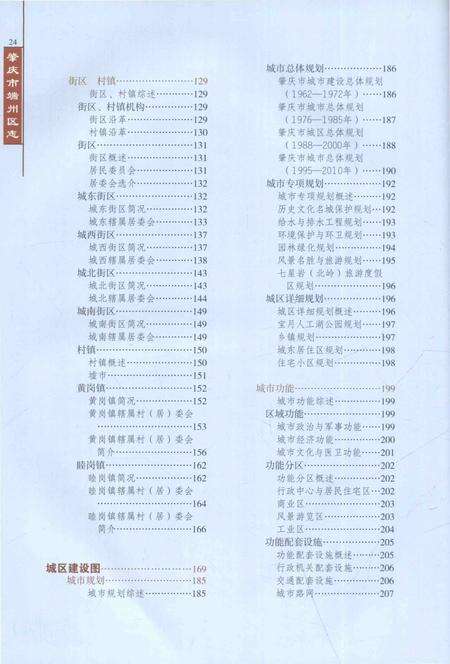 24
肇庆市端州区志
街区 村镇……129
街区、村镇综述……129
街区、村镇机构……129
街区沿革……129
村镇沿革……130
街区……131
街区概述……131
居民委员会……131
居委会选介……132
城东街区……132
城东街区简况……132
城东辖属居委会……133
城西街区……137
城西街区简况……137
城西辖属居委会……138
城北街区……143
城北街区简况……143
城北辖属居委会……144
城南街区……149
城南街区简况……149
城南辖属居委会……149
村镇……150
村镇概述……150
墟市……151
黄岗镇……152
黄岗镇简况……152
黄岗镇辖属村（居）委会
……153
黄岗镇辖属村（居）委会
简介……156
睦岗镇……162
睦岗镇简况……162
睦岗镇辖属村（居）委会
……164
睦岗镇辖属村（居）委会
简介……166
城区建设图……169
城市规划……185
城市规划综述……185
城市总体规划……186
肇庆市城市建设总体规划
（1962—1972年）……186
肇庆市城市总体规划
（1976—1985年）……187
肇庆市城区总体规划
（1988—2000年）……188
肇庆市城市总体规划
（1995—2010年）……190
城市专项规划……192
城市专项规划概述……192
历史文化名城保护规划…192
给水与排水工程规划……193
环境保护与环卫规划……193
园林绿化规划……194
风景名胜与旅游规划……195
七星岩（北岭）旅游度假
区规划……196
城区详细规划……196
城区详细规划概述……196
宝月人工湖公园规划……197
乡镇规划……197
城东居住区规划……198
住宅小区规划……198
城市功能……199
城市功能综述……199
区域功能……199
城市政治与军事功能……199
城市经济功能……200
城市文化与医卫功能……201
功能分区……202
功能分区概述……202
行政中心与居民住宅区…202
商业区……203
风景游览区……203
工业区……204
功能配套设施……205
功能配套设施概述……205
行政机关配套设施……206
交通配套设施……206
城市路网……207